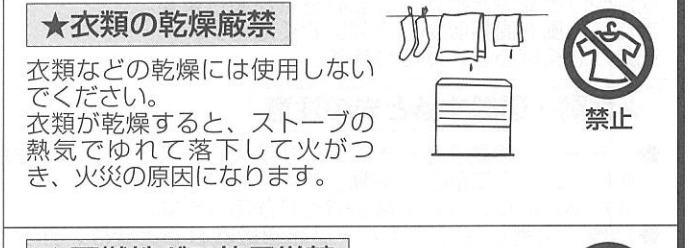 ★衣類の乾燥厳禁
衣類などの乾燥には使用しない
でください。
衣類が乾燥すると、ストーブの
熱気でゆれて落下して火がつ
き、火災の原因になります。
禁止